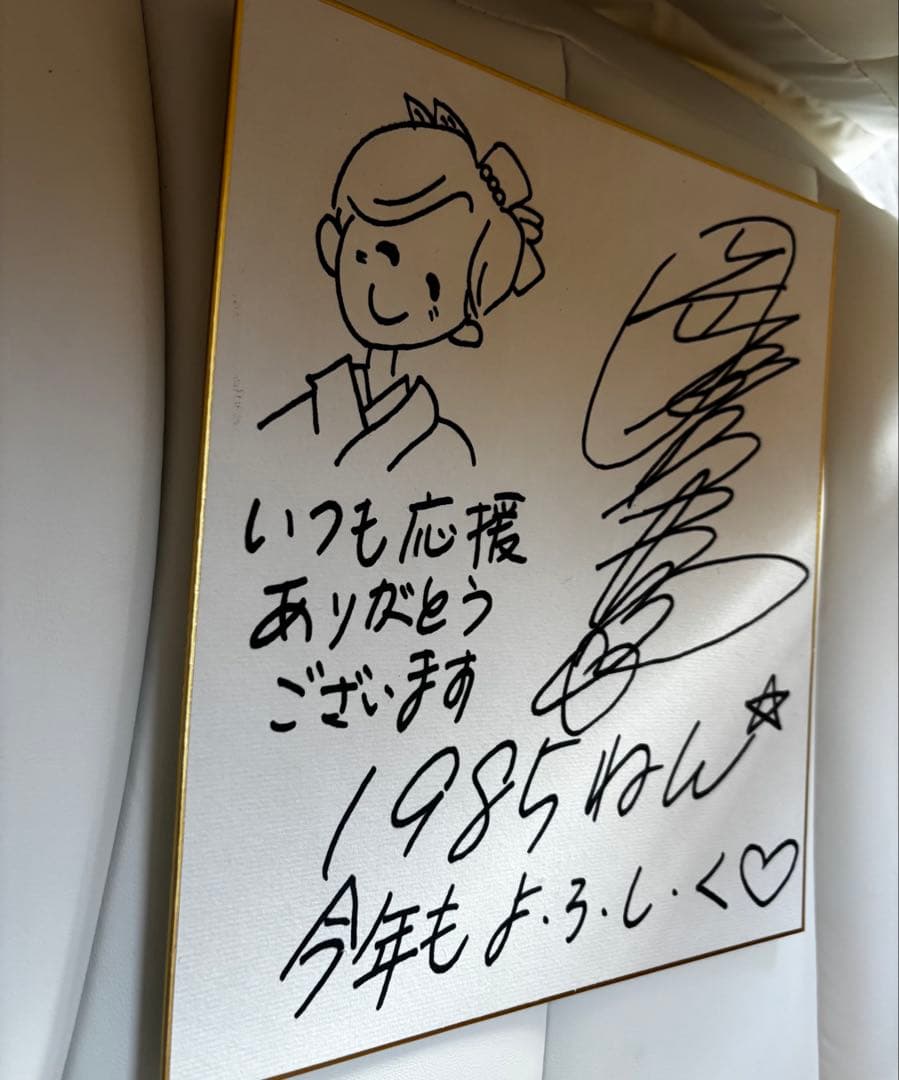 いつも応援
ありがとう
ございます
1985ねん☆
今年もよ・ろ・し・く♡